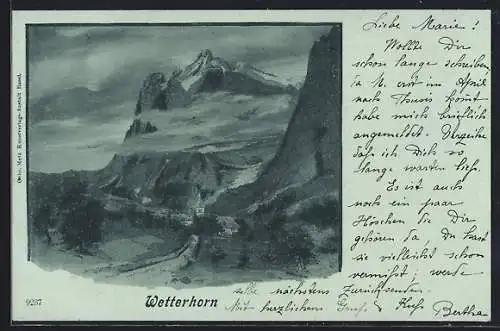 Gebr. Metz. Kunstverlags-Anstalt Basel.
9237
Wetterhorn
Liebe Marie!
Wollte Dir
schon lange schreiben
da M. erst im April
nach Thusis kömt
habe mich brieflich
angemeldet. Verzeihe
daß ich Dich so
lange warten ließ.
Es ist auch
noch ein paar
Höschen die Dir
gehören da. Du hast
sie vielleicht schon
vermißt; werde
selbe nächstens Zurücksenden.
Mit herzlichem Gruß & Kuß Bertha